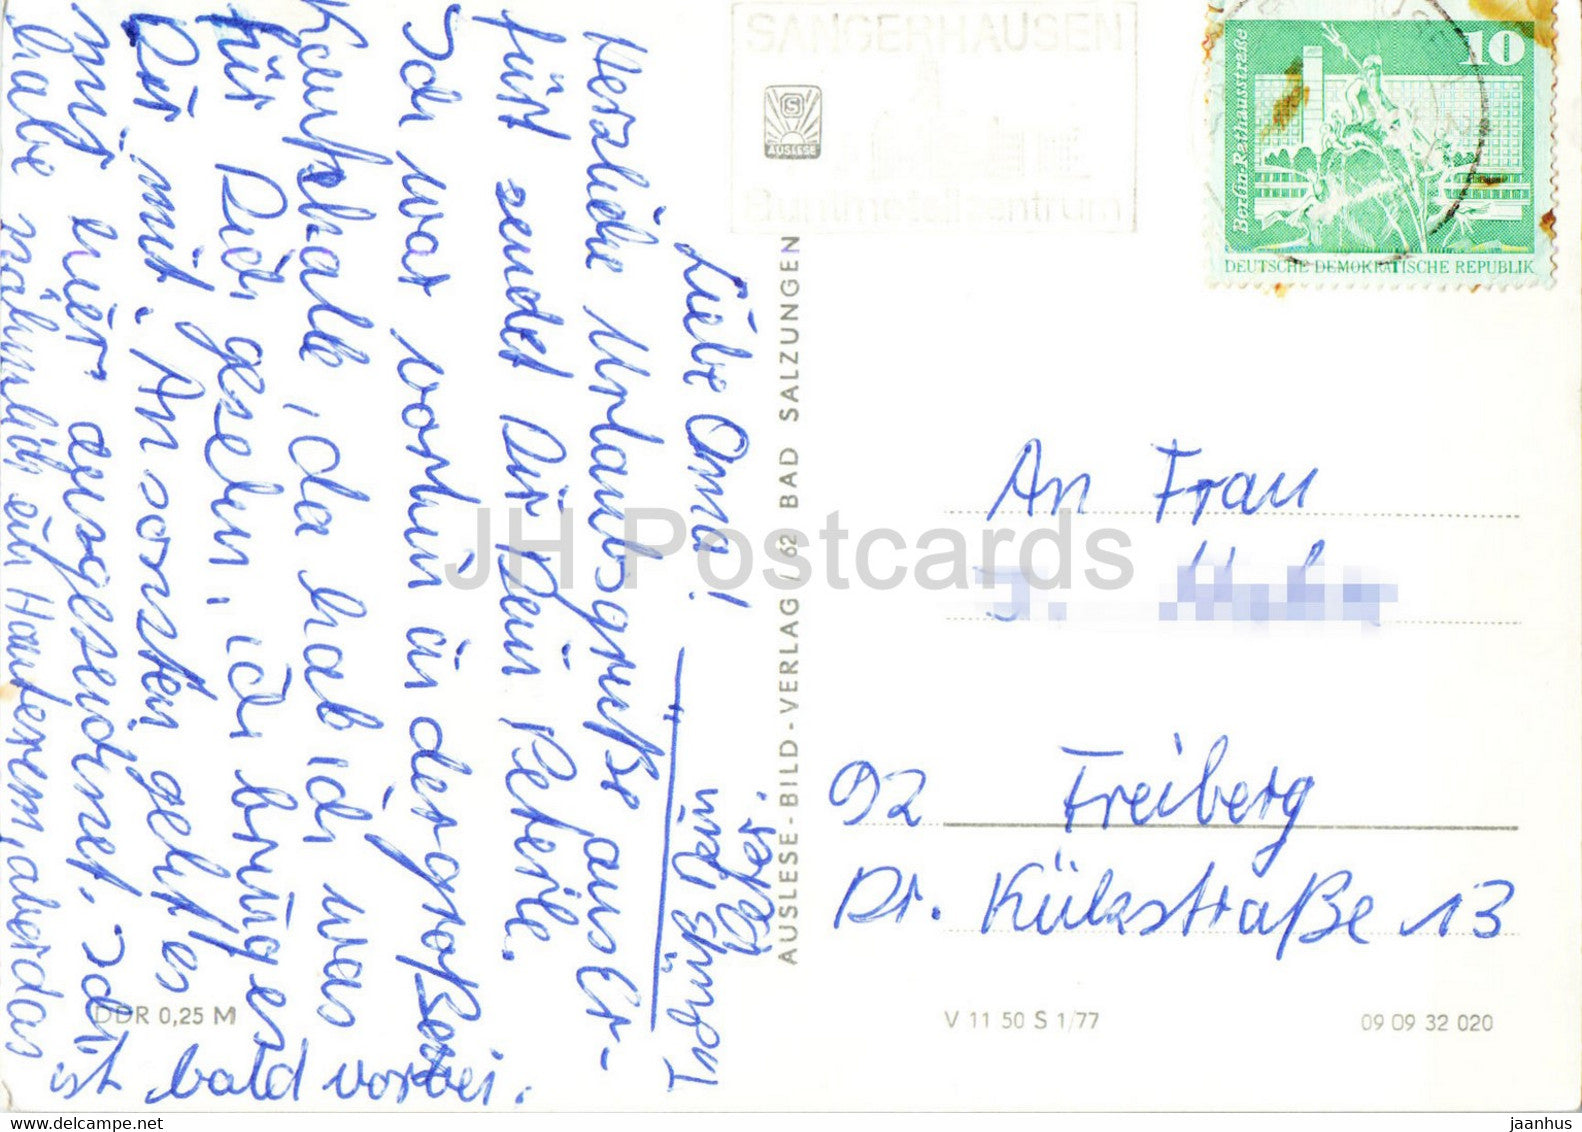 Liebe Oma!
Herzliche Urlaubsgrüße aus Er-
furt sendet Dir Dein Peterle.
Ich war vorhin in der großen
Kaufhalle, da hab ich was
für Dich gesehn, ich bring es
Dir mit. Ansonsten geht es
mir hier ausgezeichnet. Ich
habe nämlich ein Hauterem, aber das
ist bald vorbei.
Tschüß Dein
Peter.
SANGERHAUSEN
S
AUSLESE
10
Berlin-Rathausstraße
DEUTSCHE DEMOKRATISCHE REPUBLIK
AUSLESE-BILD-VERLAG / 62 BAD SALZUNGEN
An Frau
J.
92 Freiberg
Dr. Külzstraße 13
DDR 0,25 M
V 11 50 S 1/77
09 09 32 020
JH Postcards
www.delcampe.net
jaanhus